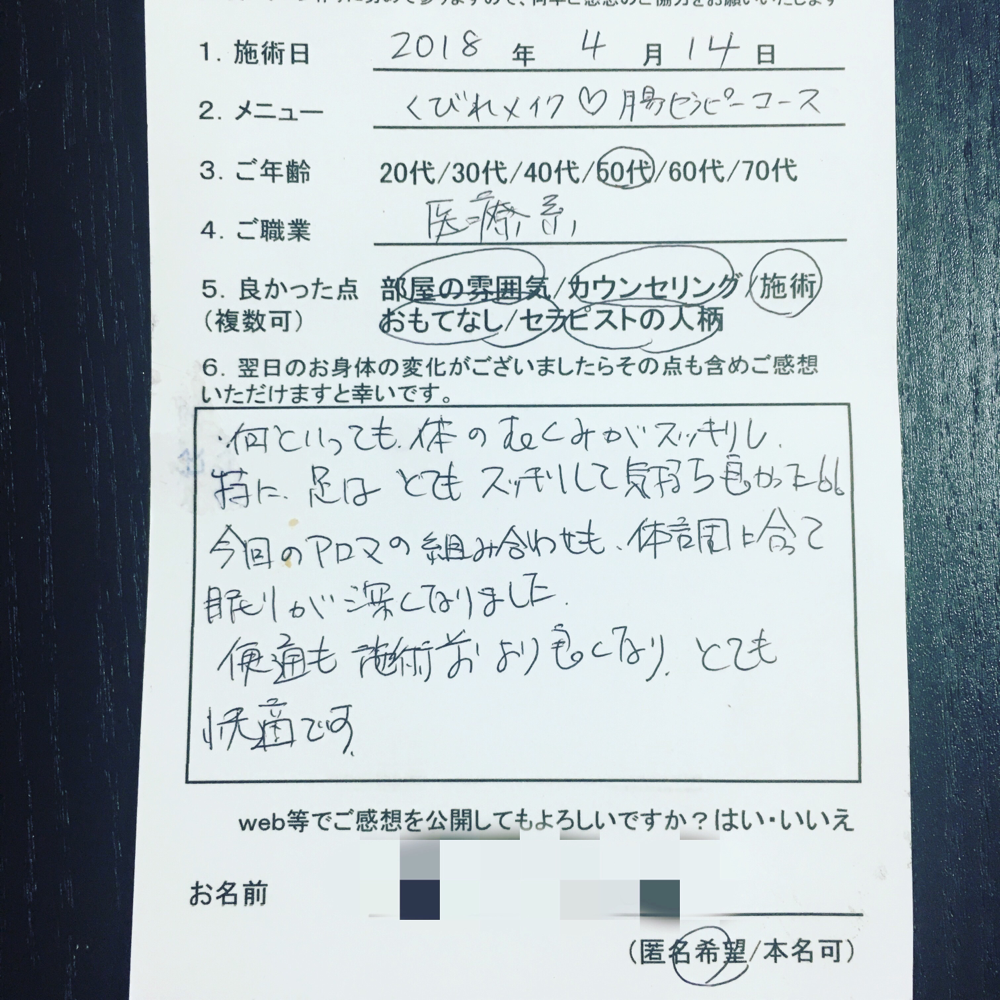 1. 施術日 2018 年 4 月 14 日
2. メニュー くびれメイク♡腸セラピーコース
3. ご年齢 20代/30代/40代/50代/60代/70代
4. ご職業 医療系
5. 良かった点 部屋の雰囲気/カウンセリング/施術
(複数可) おもてなし/セラピストの人柄
6. 翌日のお身体の変化がございましたらその点も含めご感想
いただけますと幸いです。
・何といっても、体のむくみがスッキリし、
特に、足は とても スッキリして気持ち良かった
今回のアロマの組み合わせも、体調に合って
眠りが深くなりました。
便通も施術前より良くなり、とても
快適です。
web等でご感想を公開してもよろしいですか?はい・いいえ
お名前
(匿名希望/本名可)